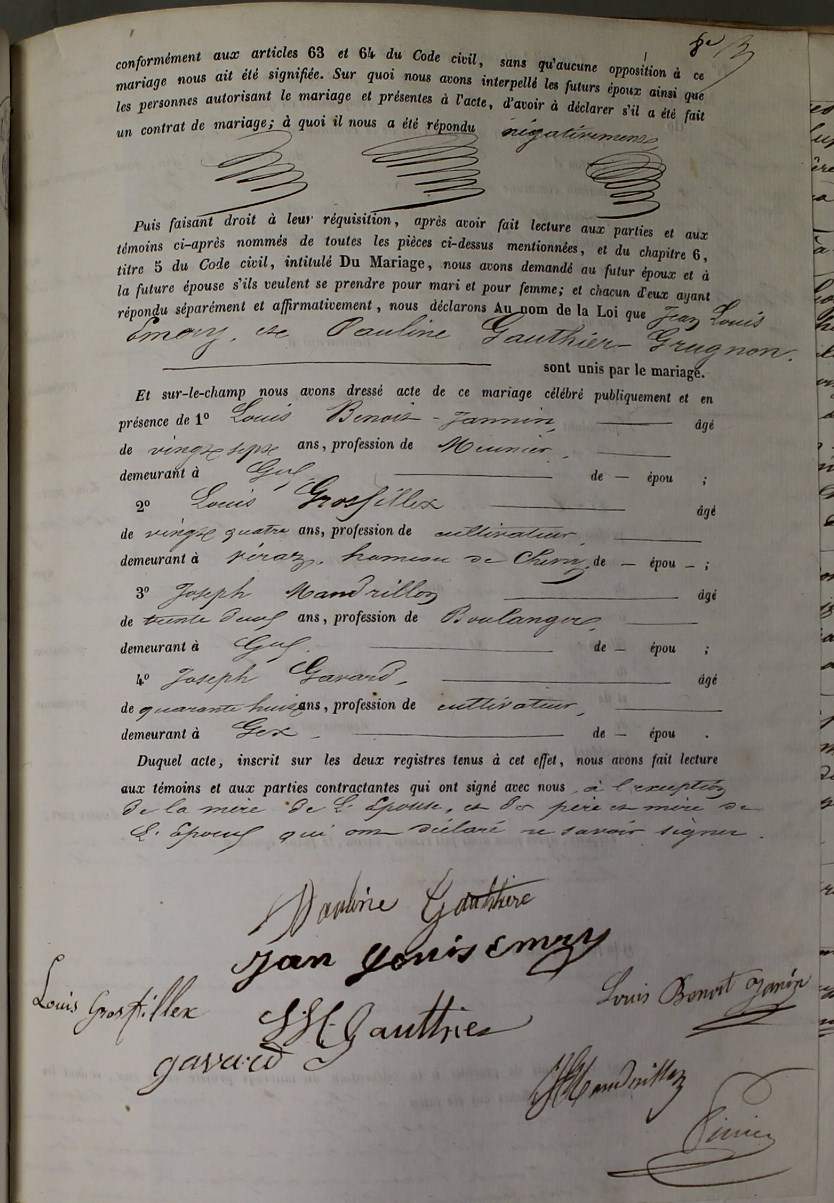 conformément aux articles 63 et 64 du Code civil, sans qu'aucune opposition à ce
mariage nous ait été signifiée. Sur quoi nous avons interpellé les futurs époux ainsi que
les personnes autorisant le mariage et présentes à l'acte, d'avoir à déclarer s'il a été fait
un contrat de mariage; à quoi il nous a été répondu négativement
Puis faisant droit à leur réquisition, après avoir fait lecture aux parties et aux
témoins ci-après nommés de toutes les pièces ci-dessus mentionnées, et du chapitre 6,
titre 5 du Code civil, intitulé Du Mariage, nous avons demandé au futur époux et à
la future épouse s'ils veulent se prendre pour mari et pour femme; et chacun d'eux ayant
répondu séparément et affirmativement, nous déclarons Au nom de la Loi que Jean Louis
Emery, et Pauline Gauthier-Grugnon.
sont unis par le mariage.
Et sur-le-champ nous avons dressé acte de ce mariage célébré publiquement et en
présence de 1º Louis Benoit-Jannin, âgé
de vingt sept ans, profession de Meunier,
demeurant à Gex, de — épou ;
2º Louis Grosfillex âgé
de vingt quatre ans, profession de cultivateur,
demeurant à véraz, hameau de Chevry, de — épou - ;
3º Joseph Mandrillon âgé
de trente deux ans, profession de Boulanger,
demeurant à Gex. de — épou ;
4º Joseph Gavard, âgé
de quarante huit ans, profession de cultivateur,
demeurant à Gex. de — épou .
Duquel acte, inscrit sur les deux registres tenus à cet effet, nous avons fait lecture
aux témoins et aux parties contractantes qui ont signé avec nous, à l'exception
de la mère de L'Epouse, et des père et mère de
L'Epoux qui ont déclaré ne savoir signer.
Pauline Gauthiere
Jan Louis Emery
Louis Grosfillex
Louis Benoit Janin
gavard
Gauthier
Mandrillon